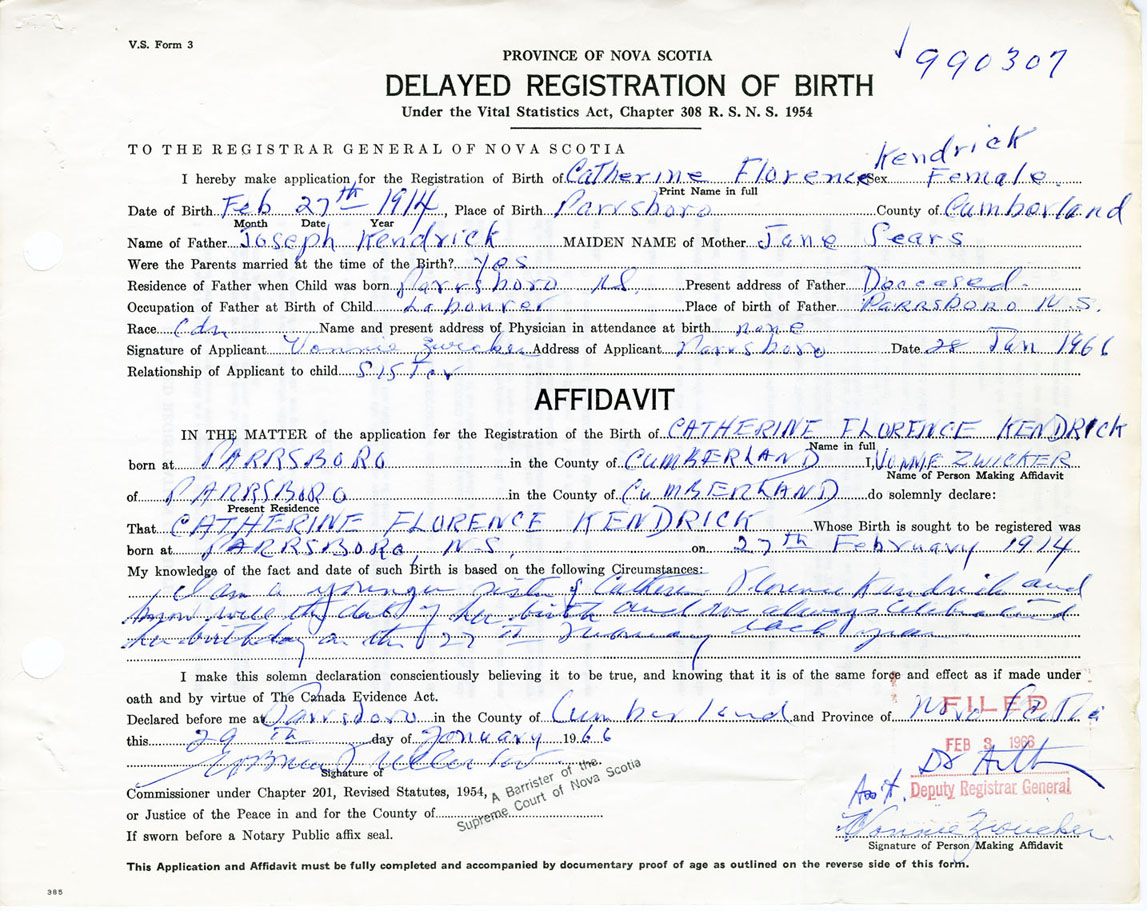 V.S. Form 3
990307
PROVINCE OF NOVA SCOTIA
DELAYED REGISTRATION OF BIRTH
Under the Vital Statistics Act, Chapter 308 R. S. N. S. 1954
TO THE REGISTRAR GENERAL OF NOVA SCOTIA
Kendrick
I hereby make application for the Registration of Birth of Catherine Florence Sex Female
Print Name in full
Date of Birth Feb 27th 1914, Place of Birth Parrsboro County of Cumberland
Month Date Year
Name of Father Joseph Kendrick MAIDEN NAME of Mother Jane Sears
Were the Parents married at the time of the Birth? Yes
Residence of Father when Child was born Parrsboro NS. Present address of Father Deceased.
Occupation of Father at Birth of Child Labourer Place of birth of Father PARRSBORO N.S.
Race Cdn Name and present address of Physician in attendance at birth none
Signature of Applicant Vonnie Zwicker Address of Applicant Parrsboro Date 28 Jan 1966
Relationship of Applicant to child Sister
AFFIDAVIT
IN THE MATTER of the application for the Registration of the Birth of CATHERINE FLORENCE KENDRICK
Name in full
born at PARRSBORO in the County of CUMBERLAND I, VONNIE ZWICKER
Name of Person Making Affidavit
of PARRSBORO in the County of CUMBERLAND do solemnly declare:
Present Residence
That CATHERINE FLORENCE KENDRICK Whose Birth is sought to be registered was
born at PARRSBORO, N.S., on 27th February 1914
My knowledge of the fact and date of such Birth is based on the following Circumstances:
I am a younger sister of Catherine Florence Kendrick and
know well the date of her birth and we always celebrated
her birthday on the 27th February each year
I make this solemn declaration conscientiously believing it to be true, and knowing that it is of the same force and effect as if made under
oath and by virtue of The Canada Evidence Act.
Declared before me at Parrsboro in the County of Cumberland and Province of Nova Scotia
FILED
this 29th day of January 1966
FEB 3 1966
Signature of
Commissioner under Chapter 201, Revised Statutes, 1954,
A Barrister of the
Supreme Court of Nova Scotia
Ass't. Deputy Registrar General
or Justice of the Peace in and for the County of
If sworn before a Notary Public affix seal.
Vonnie Zwicker
Signature of Person Making Affidavit
This Application and Affidavit must be fully completed and accompanied by documentary proof of age as outlined on the reverse side of this form.
385